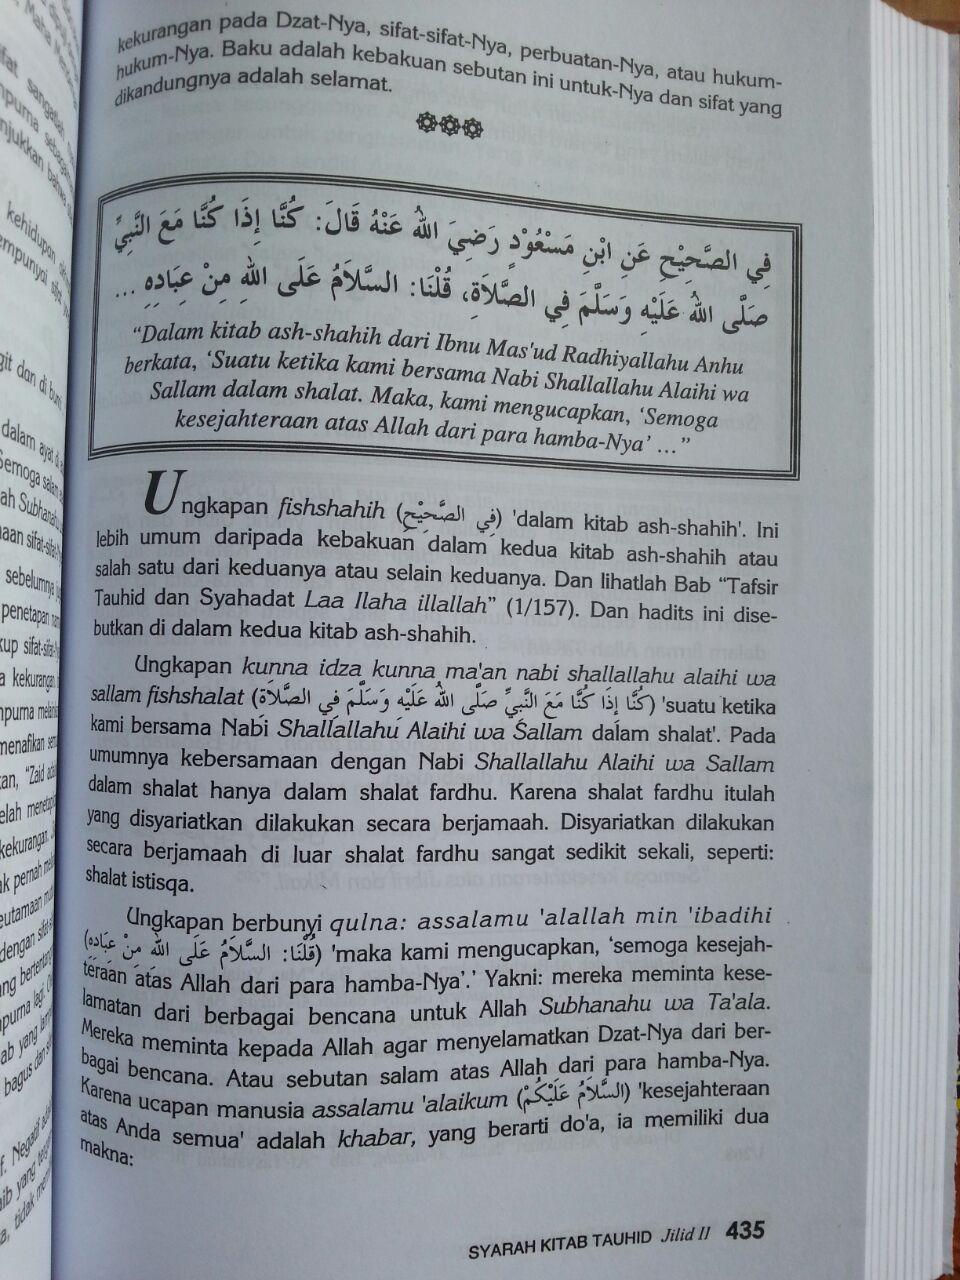 kekurangan pada Dzat-Nya, sifat-sifat-Nya, perbuatan-Nya, atau hukum-
hukum-Nya. Baku adalah kebakuan sebutan ini untuk-Nya dan sifat yang
dikandungnya adalah selamat.
فِي الصَّحِيْحِ عَنِ ابْنِ مَسْعُوْدٍ رَضِيَ اللهُ عَنْهُ قَالَ: كُنَّا إِذَا كُنَّا مَعَ النَّبِيِّ
صَلَّى اللهُ عَلَيْهِ وَسَلَّمَ فِي الصَّلَاةِ، قُلْنَا: السَّلَامُ عَلَى اللهِ مِنْ عِبَادِهِ ...
“Dalam kitab ash-shahih dari Ibnu Mas'ud Radhiyallahu Anhu
berkata, ‘Suatu ketika kami bersama Nabi Shallallahu Alaihi wa
Sallam dalam shalat. Maka, kami mengucapkan, ‘Semoga
kesejahteraan atas Allah dari para hamba-Nya’ ...”
Ungkapan fishshahih (فِي الصَّحِيْحِ) 'dalam kitab ash-shahih'. Ini
lebih umum daripada kebakuan dalam kedua kitab ash-shahih atau
salah satu dari keduanya atau selain keduanya. Dan lihatlah Bab “Tafsir
Tauhid dan Syahadat Laa Ilaha illallah” (1/157). Dan hadits ini dise-
butkan di dalam kedua kitab ash-shahih.
Ungkapan kunna idza kunna ma'an nabi shallallahu alaihi wa
sallam fishshalat (كُنَّا إِذَا كُنَّا مَعَ النَّبِيِّ صَلَّى اللهُ عَلَيْهِ وَسَلَّمَ فِي الصَّلَاةِ) 'suatu ketika
kami bersama Nabi Shallallahu Alaihi wa Sallam dalam shalat'. Pada
umumnya kebersamaan dengan Nabi Shallallahu Alaihi wa Sallam
dalam shalat hanya dalam shalat fardhu. Karena shalat fardhu itulah
yang disyariatkan dilakukan secara berjamaah. Disyariatkan dilakukan
secara berjamaah di luar shalat fardhu sangat sedikit sekali, seperti:
shalat istisqa.
Ungkapan berbunyi qulna: assalamu 'alallah min 'ibadihi
(قُلْنَا: السَّلَامُ عَلَى اللهِ مِنْ عِبَادِهِ) 'maka kami mengucapkan, ‘semoga kesejah-
teraan atas Allah dari para hamba-Nya’.’ Yakni: mereka meminta kese-
lamatan dari berbagai bencana untuk Allah Subhanahu wa Ta'ala.
Mereka meminta kepada Allah agar menyelamatkan Dzat-Nya dari ber-
bagai bencana. Atau sebutan salam atas Allah dari para hamba-Nya.
Karena ucapan manusia assalamu 'alaikum (السَّلَامُ عَلَيْكُمْ) 'kesejahteraan
atas Anda semua' adalah khabar, yang berarti do'a, ia memiliki dua
makna:
SYARAH KITAB TAUHID Jilid II 435